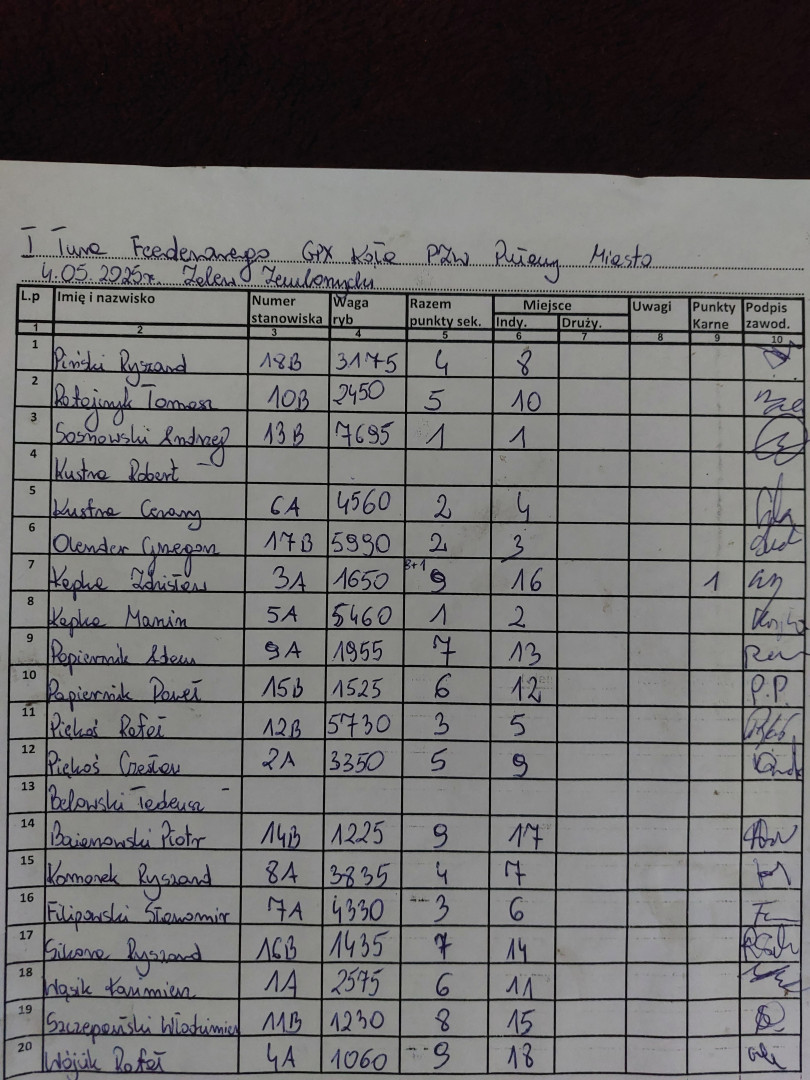 I Tura Feederowego GPX Koła PZW Puławy Miasto
4.05.2025r. Zalew Zemborzycki
L.p Imię i nazwisko Numer stanowiska Waga ryb Razem punkty sek. Miejsce Indy. Druży. Uwagi Punkty Karne Podpis zawod.
1 2 3 4 5 6 7 8 9 10
1 Piński Ryszard 18B 3175 4 8
2 Ratajczyk Tomasz 10B 2450 5 10
3 Sosnowski Andrzej 13B 7695 1 1
4 Kustra Robert -
5 Kustra Cezary 6A 4560 2 4
6 Olender Grzegorz 17B 5990 2 3
7 Kępka Zdzisław 3A 1650 8+1 9 16 1
8 Kępka Marcin 5A 5460 1 2
9 Papiernik Adam 9A 1955 7 13
10 Papiernik Paweł 15B 1525 6 12 P.P.
11 Piękoś Rafał 12B 5730 3 5
12 Piękoś Czesław 2A 3350 5 9
13 Belowski Tadeusz -
14 Baranowski Piotr 14B 1225 9 17
15 Komorek Ryszard 8A 3835 4 7
16 Filipowski Sławomir 7A 4330 3 6
17 Sikora Ryszard 16B 1435 7 14
18 Wąsik Kazimierz 1A 2575 6 11
19 Szczepański Włodzimierz 11B 1230 8 15
20 Wójcik Rafał 4A 1060 9 18